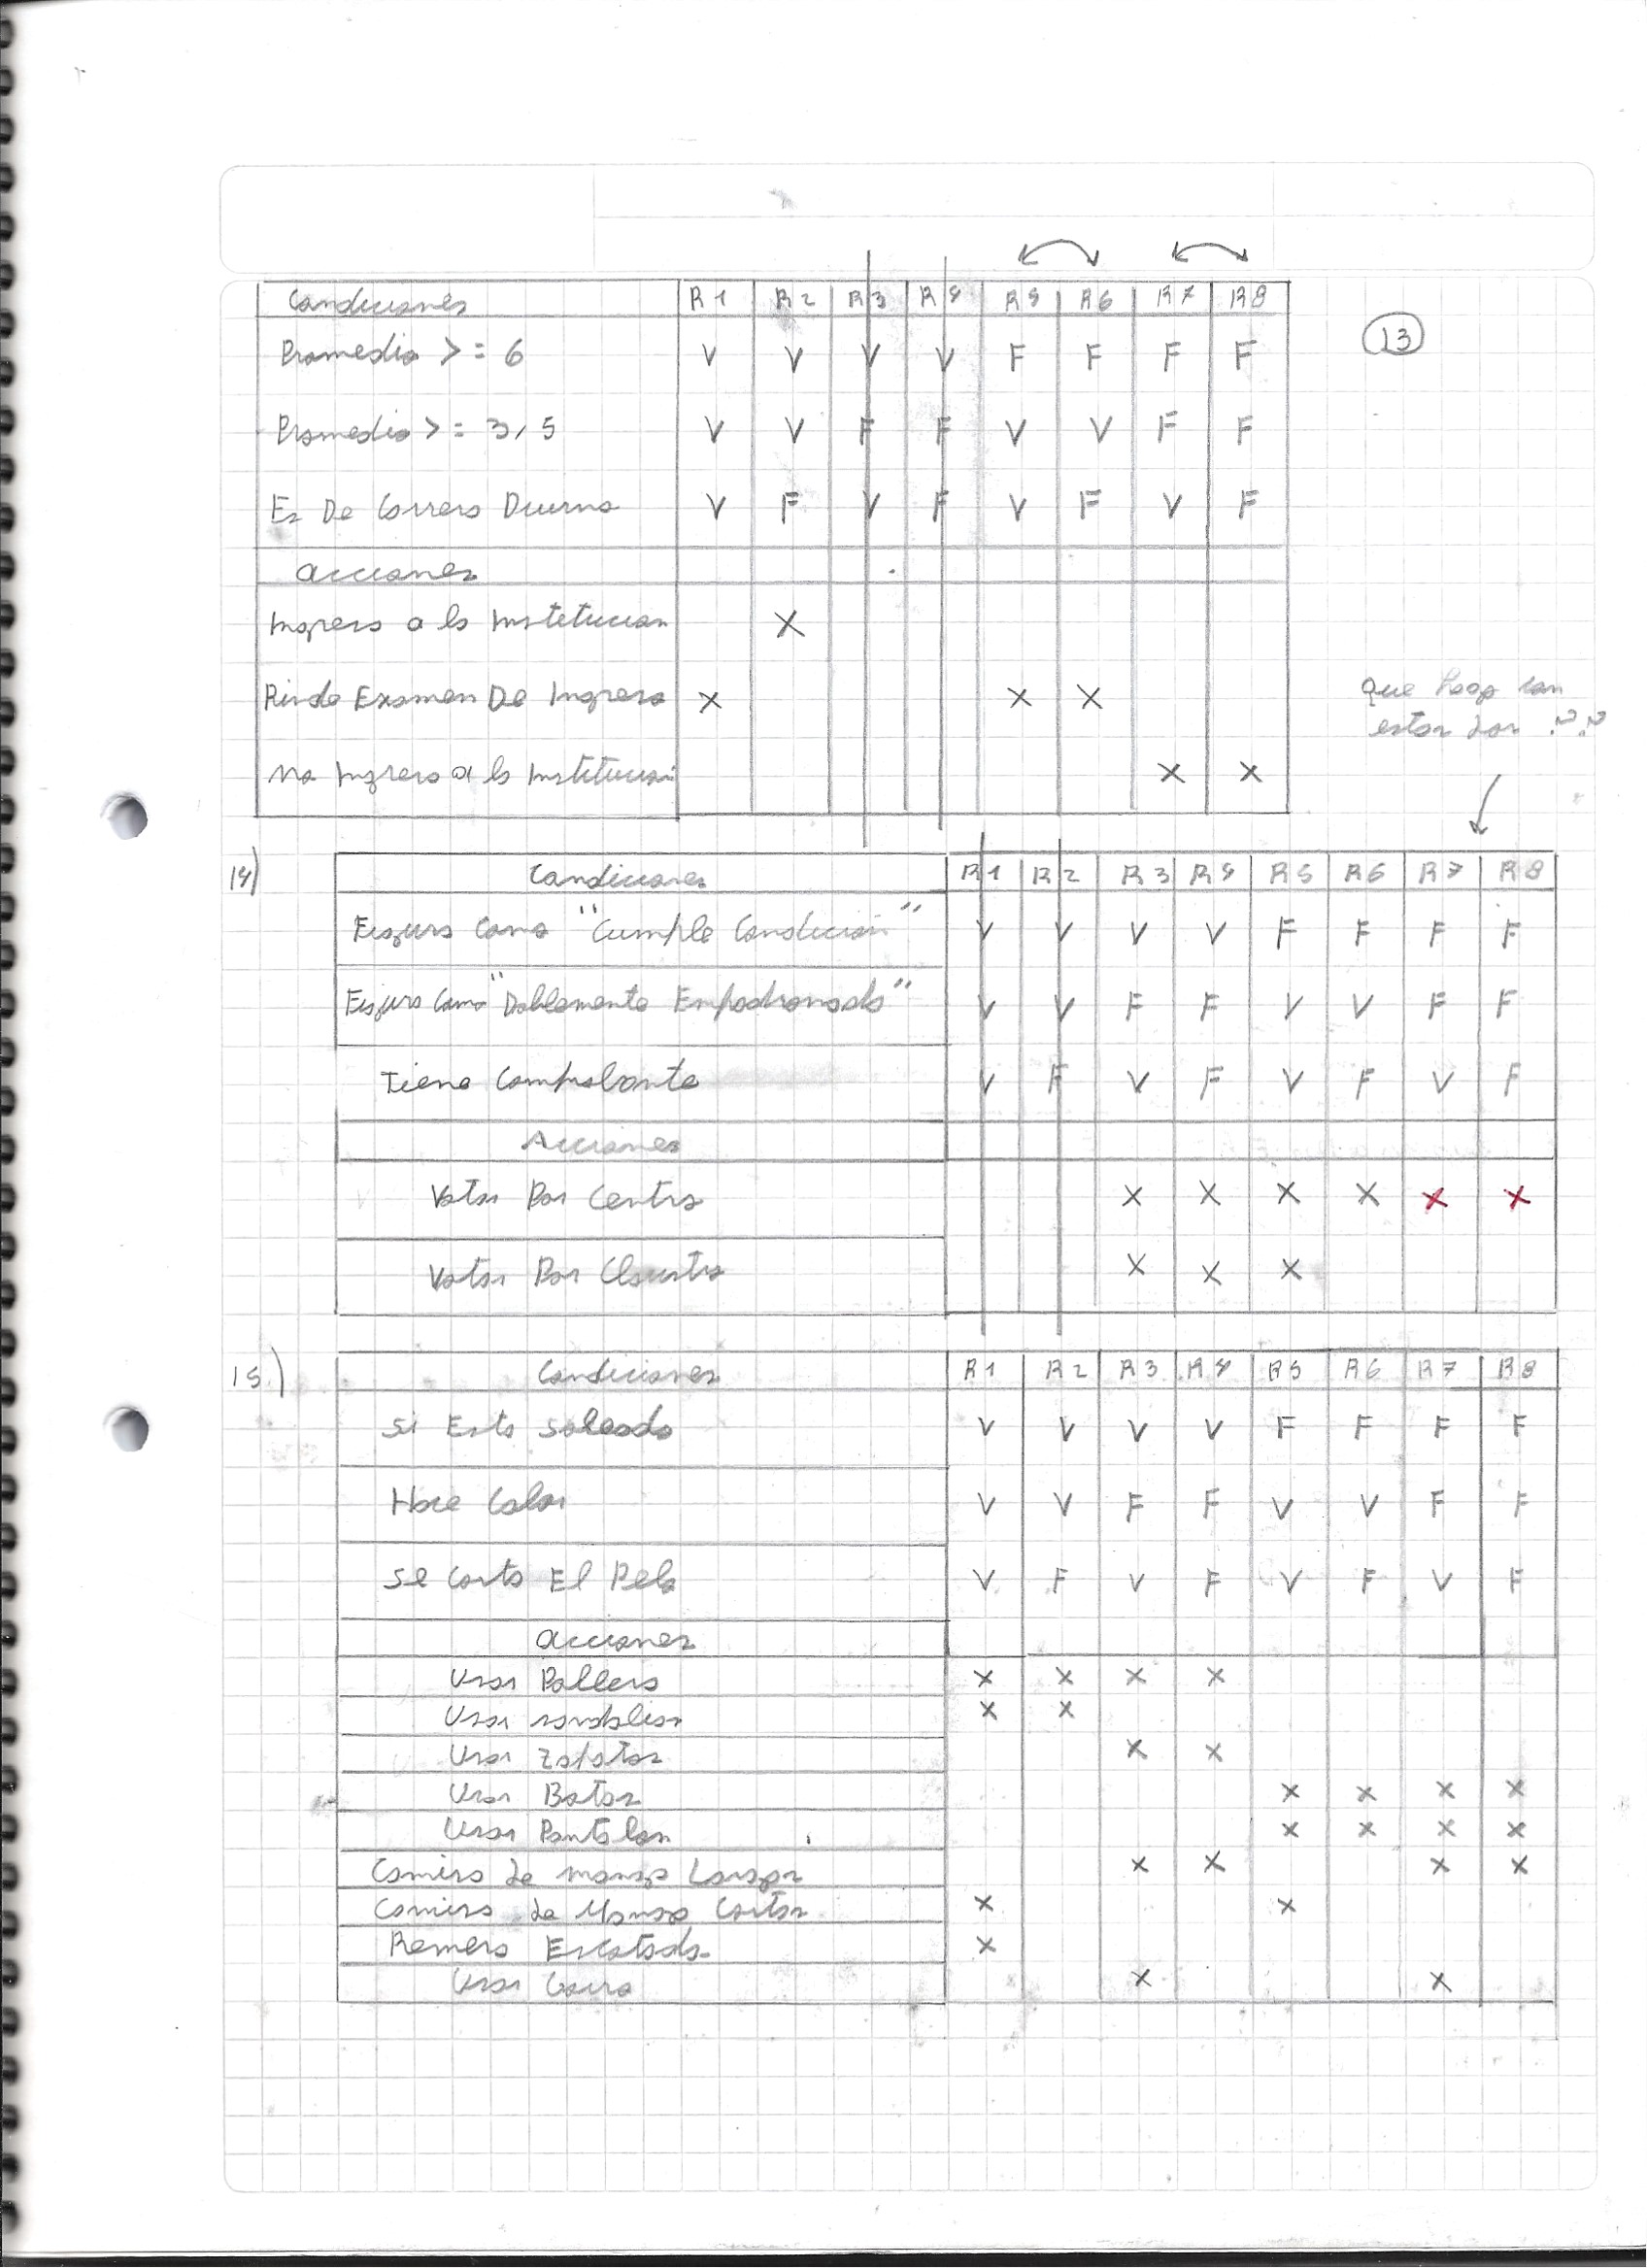 Condiciones R1 R2 R3 R4 R5 R6 R7 R8
13
Promedio >= 6 V V V V F F F F
Promedio >= 3,5 V V F F V V F F
Es De Carrera Diurna V F V F V F V F
acciones
Ingresa a la Institucion X
Rinde Examen De Ingreso X X X
que hago con
estos dos ??
No Ingresa a la Institucion X X
14) Condiciones R1 R2 R3 R4 R5 R6 R7 R8
Figura Como "Cumple Condicion" V V V V F F F F
Figura Como "Doblemente Empadronado" V V F F V V F F
Tiene Comprobante V F V F V F V F
Acciones
Votar Por Centro X X X X X X
Votar Por Claustro X X X
15) Condiciones R1 R2 R3 R4 R5 R6 R7 R8
Si Esta Soleado V V V V F F F F
Hace Calor V V F F V V F F
Se Corto El Pelo V F V F V F V F
acciones
Usar Pollera X X X X
Usar sandalias X X
Usar Zapatos X X
Usar Botas X X X X
Usar Pantalon X X X X
Camisa de manga Larga X X X X
Camisa de Manga Corta X X
Remera Escotada X
Usar Gorra X X